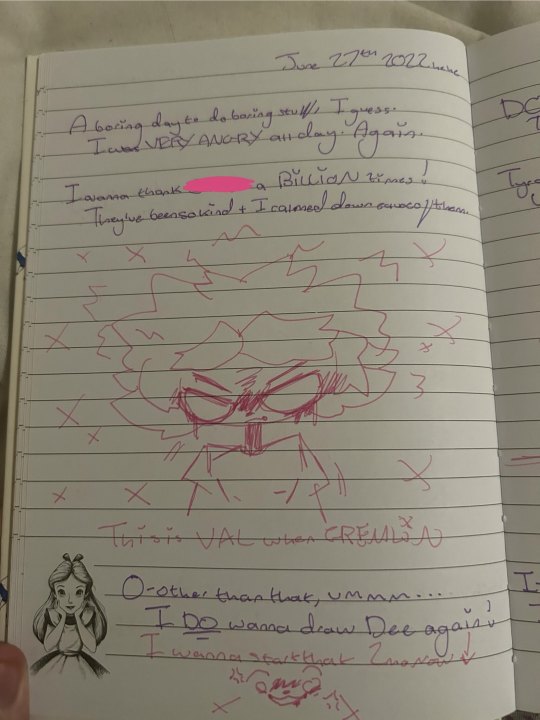 June 27th 2022 hehe
A boring day to do boring stuff, I guess.
I was VERY ANGRY all day. Again.
I wanna thank a BiLLiON times!
They've been so kind + I calmed down cause of them.
This is VAL when GREMLiN
O-other than that, ummm...
I DO wanna draw Dee again!
I wanna start that 2morrow!